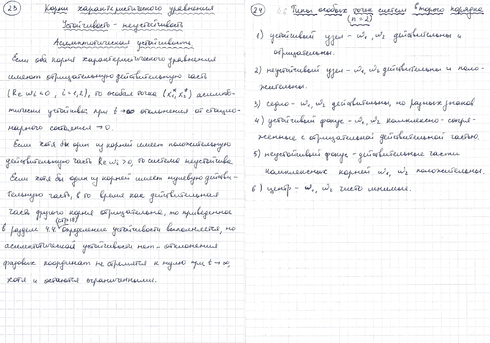 23
Корни характеристического уравнения
Устойчивость - неустойчивость
Асимптотическая устойчивость
Если оба корня характеристического уравнения
имеют отрицательную действительную часть
(Re ω₁ < 0, i = 1,2), то особая точка (x₁*, x₂*) асимпто-
тически устойчива: при t→∞ отклонения от стацио-
нарного состояния → 0.
Если хотя бы один из корней имеет положительную
действительную часть Re ωᵢ > 0, то система неустойчива.
Если хотя бы один из корней имеет нулевую действи-
тельную часть, в то время как действительная
часть другого корня отрицательна, то приведенное
в разделе 4.4 определение устойчивости выполняется, но
асимптотической устойчивости нет - отклонения
фазовых координат не стремятся к нулю при t→∞,
хотя и остаются ограниченными.
24
Типы особых точек систем второго порядка
(n=2)
1) устойчивый узел - ω₁, ω₂ действительны и
отрицательны.
2) неустойчивый узел - ω₁, ω₂ действительны и поло-
жительны.
3) седло - ω₁, ω₂ действительны, но разных знаков
4) устойчивый фокус - ω₁, ω₂ комплексно-сопря-
женные с отрицательной действительной частью.
5) неустойчивый фокус - действительные части
комплексных корней ω₁, ω₂ положительны.
6) центр - ω₁, ω₂ чисто мнимые.